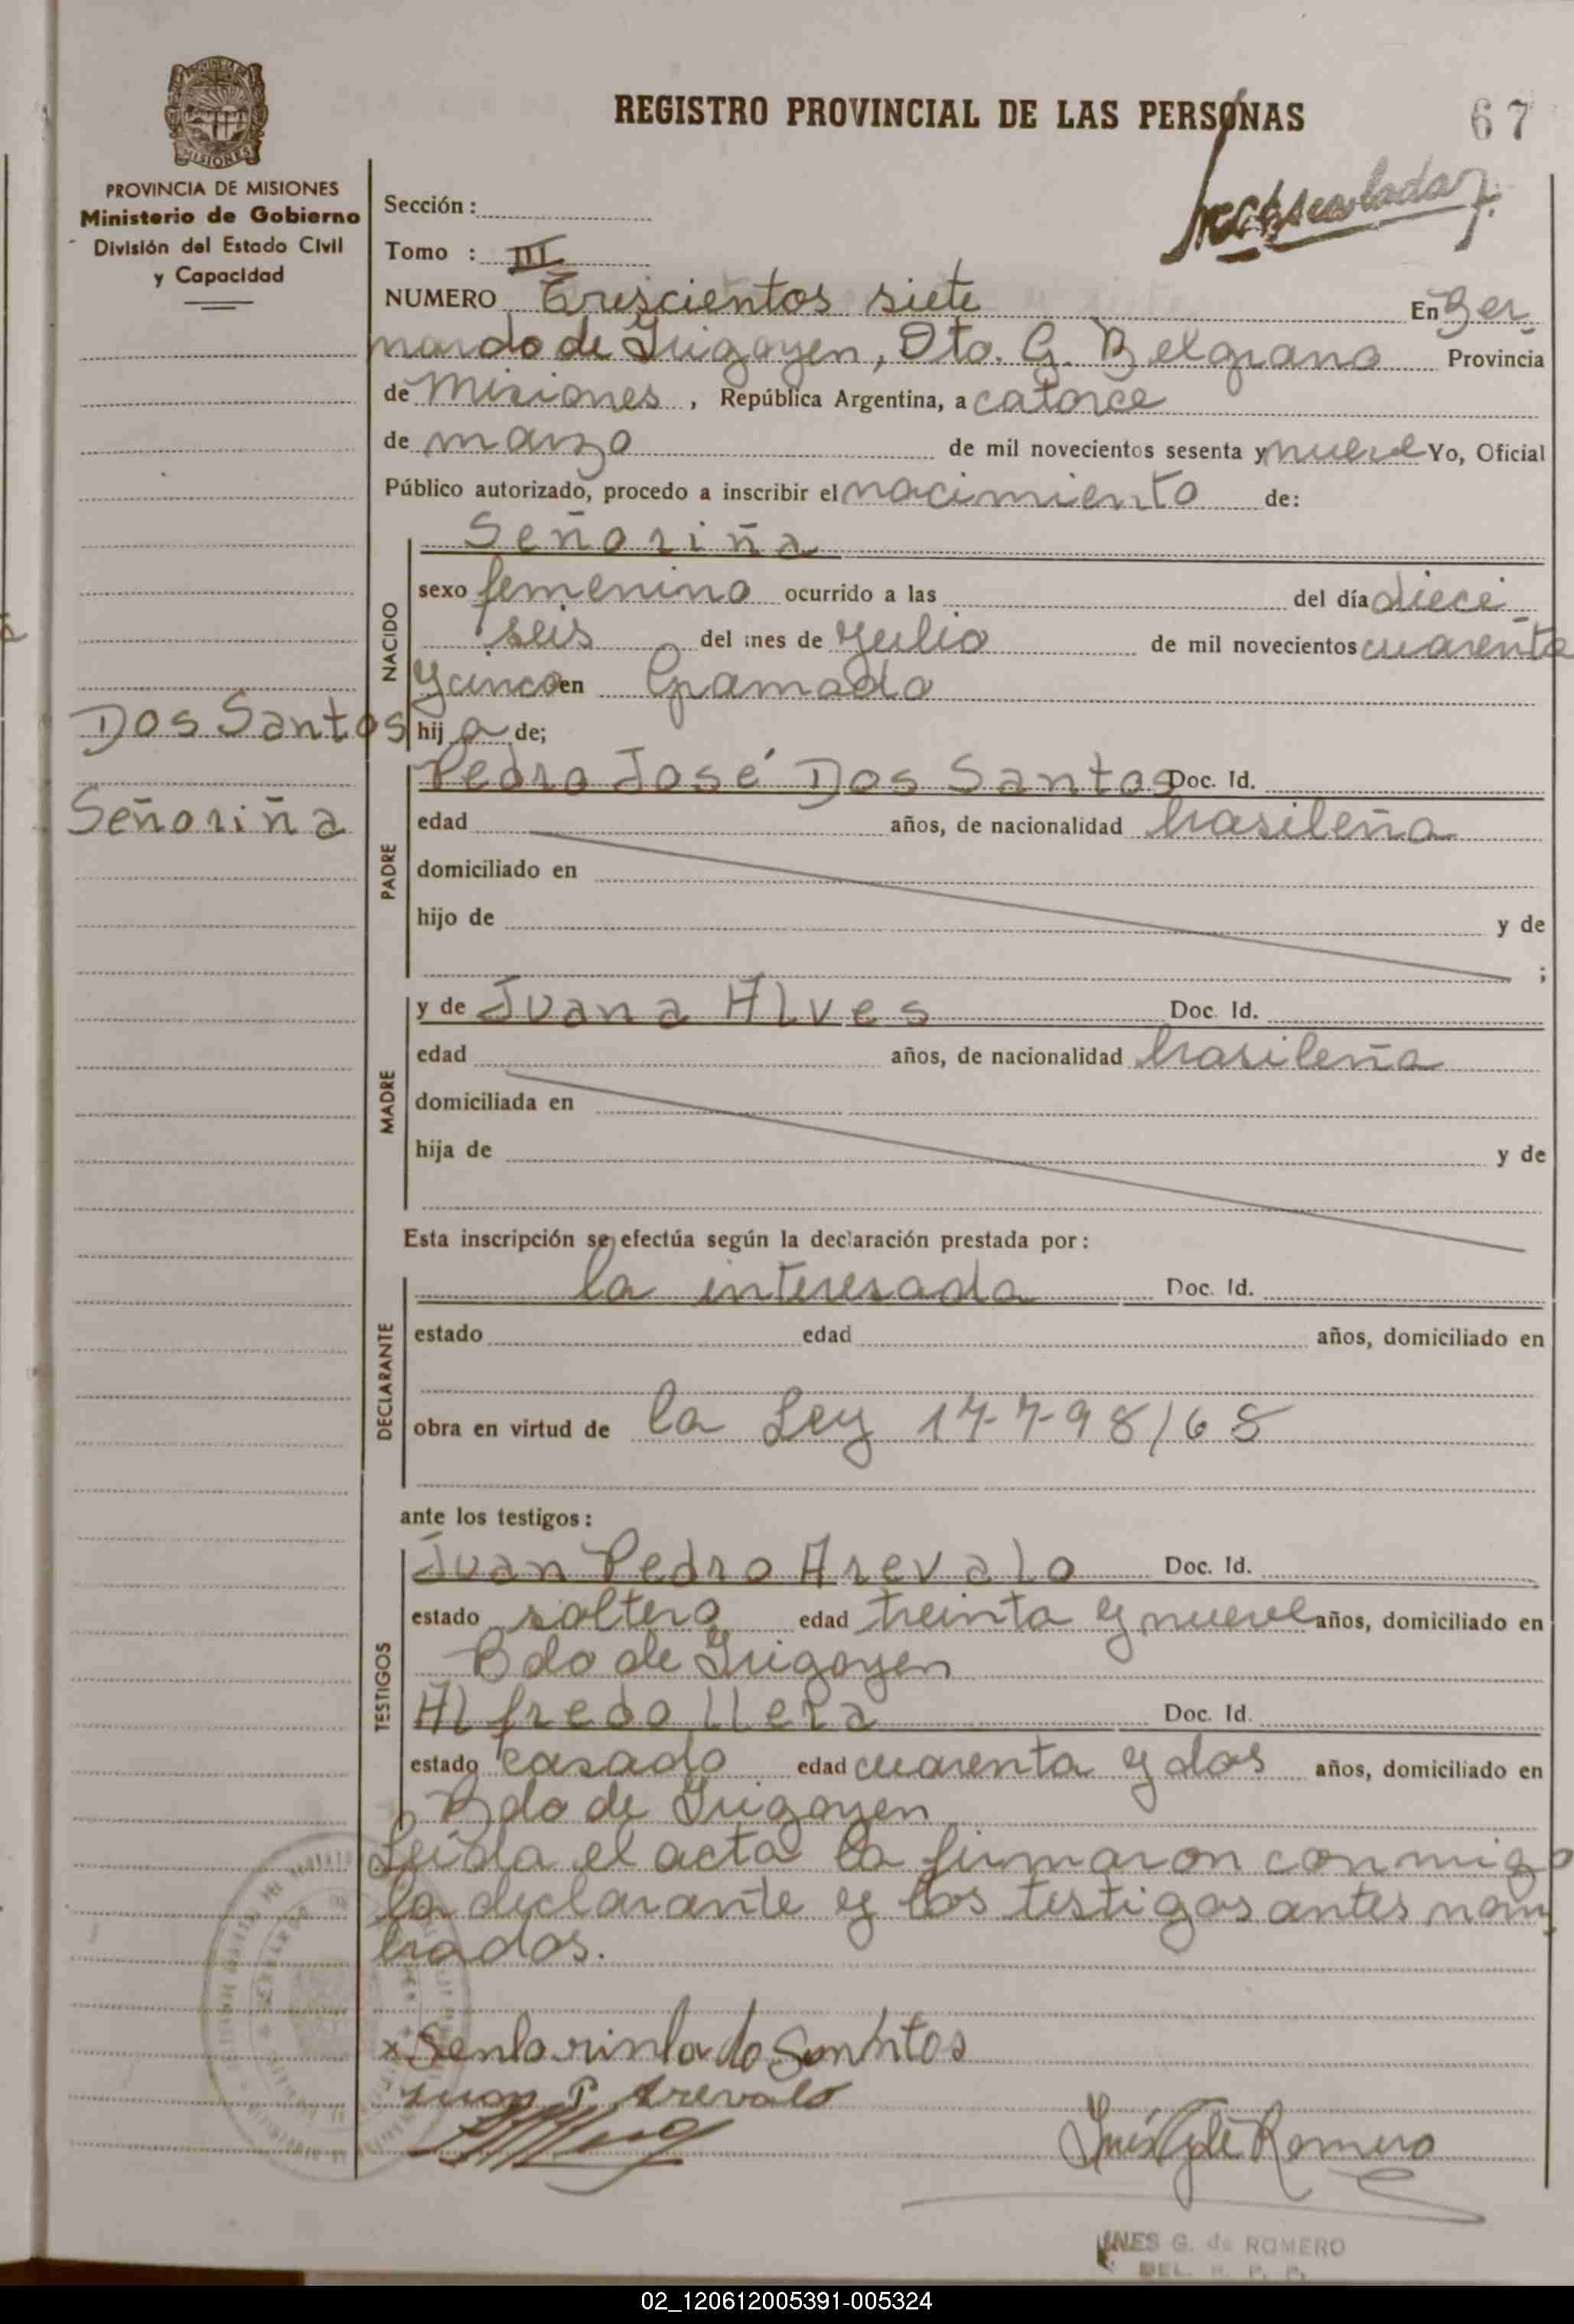 REGISTRO PROVINCIAL DE LAS PERSONAS
67
PROVINCIA DE MISIONES
Ministerio de Gobierno
División del Estado Civil
y Capacidad
Sección :
Tomo : III
NUMERO Trescientos siete En Ber
nardo de Irigoyen, Dto. G. Belgrano Provincia
de Misiones , República Argentina, a catorce
de marzo de mil novecientos sesenta y nueve Yo, Oficial
Público autorizado, procedo a inscribir el nacimiento de:
NACIDO
Señoriña
sexo femenino ocurrido a las del día dieci
seis del mes de Julio de mil novecientos cuarenta
y cinco en Gramado
Dos Santos
hij a de;
Señoriña
PADRE
Pedro José Dos Santos Doc. Id.
edad años, de nacionalidad brasileña
domiciliado en
hijo de y de
;
MADRE
y de Juana Alves Doc. Id.
edad años, de nacionalidad brasileña
domiciliada en
hija de y de
Esta inscripción se efectúa según la declaración prestada por :
DECLARANTE
la interesada Doc. Id.
estado edad años, domiciliado en
obra en virtud de la Ley 17798/68
ante los testigos :
TESTIGOS
Juan Pedro Arevalo Doc. Id.
estado soltero edad treinta y nueve años, domiciliado en
Bdo de Irigoyen
Alfredo Llera Doc. Id.
estado casado edad cuarenta y dos años, domiciliado en
Bdo de Irigoyen
Leída el acta la firmaron conmigo
la declarante y los testigos antes nom
brados.
x Senhorinha do Sanntos
Juan P. Arevalo
Inés G de Romero
INES G. de ROMERO
DEL. R. P. P.
02_120612005391-005324